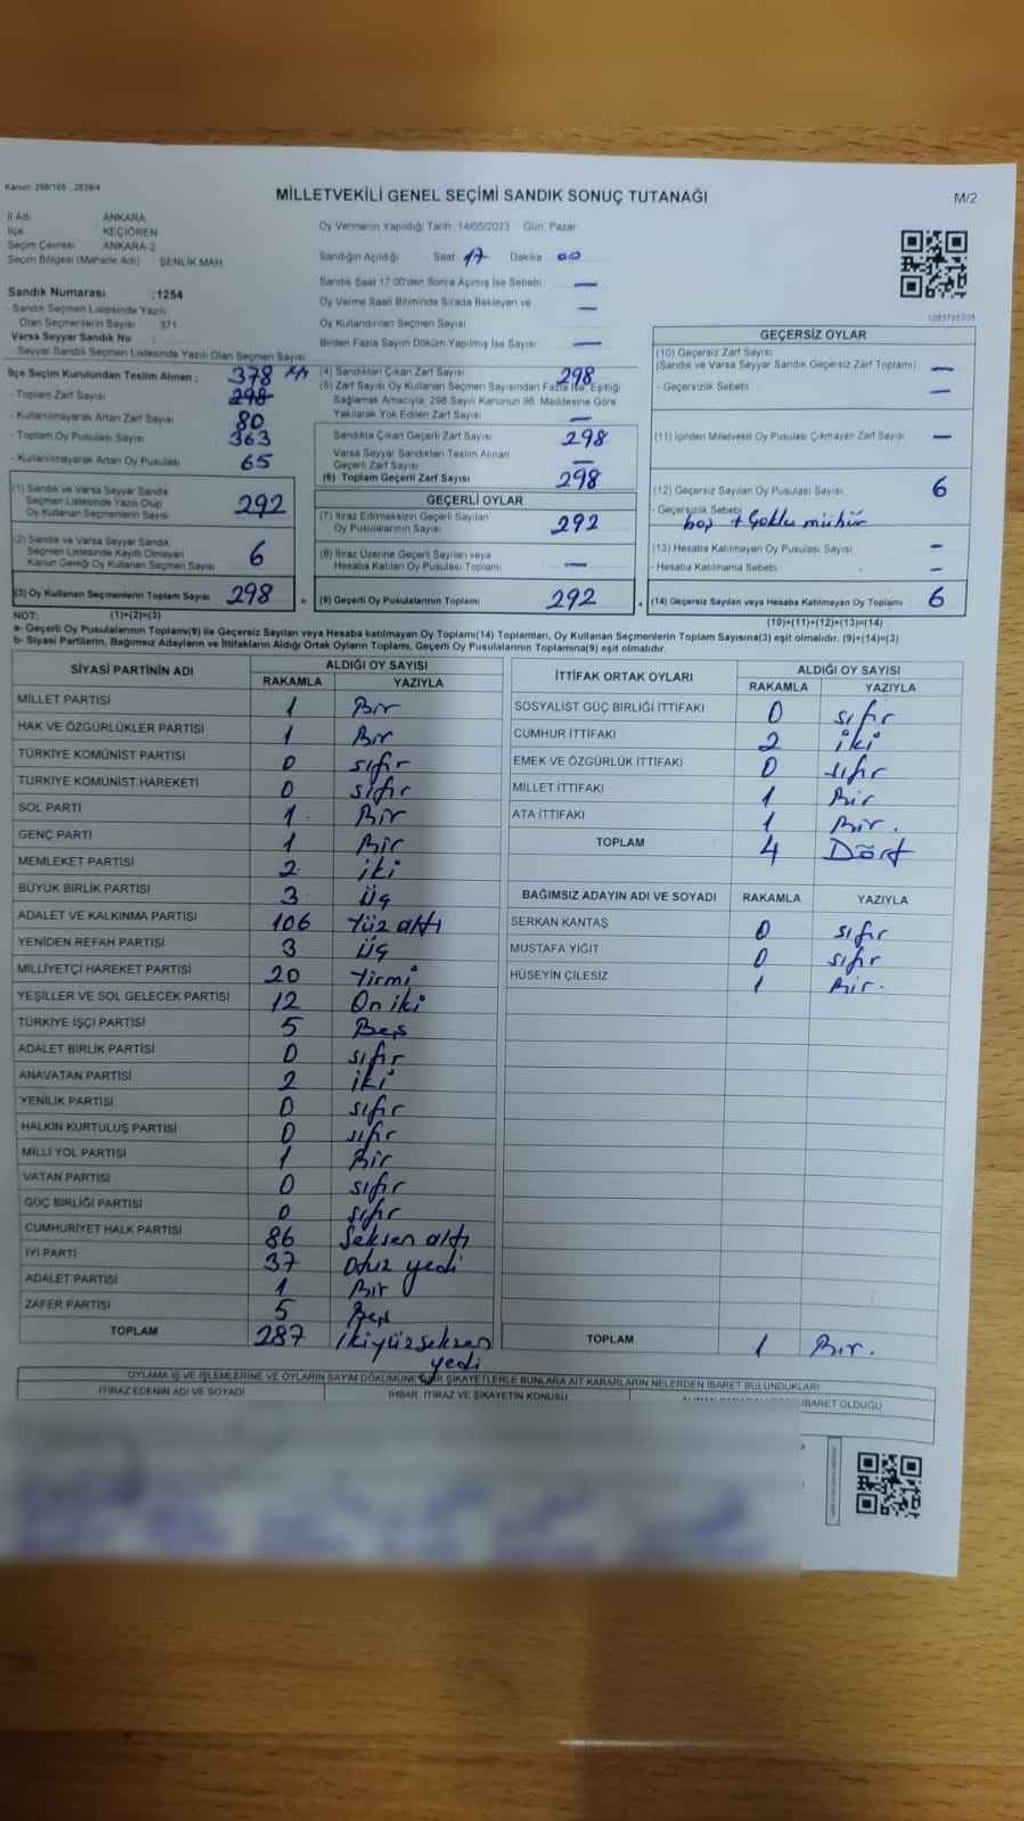 Kanun: 298/105 , 2839/4
MİLLETVEKİLİ GENEL SEÇİMİ SANDIK SONUÇ TUTANAĞI
M/2
İl Adı ANKARA
İlçe KEÇİÖREN
Seçim Çevresi ANKARA-2
Seçim Bölgesi (Mahalle Adı) ŞENLİK MAH
Sandık Numarası :1254
- Sandık Seçmen Listesinde Yazılı
Olan Seçmenlerin Sayısı 371
Varsa Seyyar Sandık No :
- Seyyar Sandık Seçmen Listesinde Yazılı Olan Seçmen Sayısı
Oy Vermenin Yapıldığı Tarih :14/05/2023 Gün: Pazar
Sandığın Açıldığı Saat 17 Dakika 00
Sandık Saat 17:00'den Sonra Açılmış İse Sebebi : —
Oy Verme Saati Bitiminde Sırada Bekleyen ve
Oy Kullandırılan Seçmen Sayısı —
Birden Fazla Sayım Döküm Yapılmış İse Sayısı —
İlçe Seçim Kurulundan Teslim Alınan : 378
- Toplam Zarf Sayısı 298
- Kullanılmayarak Artan Zarf Sayısı 80
- Toplam Oy Pusulası Sayısı 363
- Kullanılmayarak Artan Oy Pusulası 65
(1) Sandık ve Varsa Seyyar Sandık
Seçmen Listesinde Yazılı Olup
Oy Kullanan Seçmenlerin Sayısı 292
(2) Sandık ve Varsa Seyyar Sandık
Seçmen Listesinde Kayıtlı Olmayan
Kanun Gereği Oy Kullanan Seçmen Sayısı 6
(3) Oy Kullanan Seçmenlerin Toplam Sayısı 298
(4) Sandıktan Çıkan Zarf Sayısı 298
(5) Zarf Sayısı Oy Kullanan Seçmen Sayısından Fazla İse, Eşitliği
Sağlamak Amacıyla; 298 Sayılı Kanunun 98. Maddesine Göre
Yakılarak Yok Edilen Zarf Sayısı —
Sandıkta Çıkan Geçerli Zarf Sayısı 298
Varsa Seyyar Sandıktan Teslim Alınan
Geçerli Zarf Sayısı —
(6) Toplam Geçerli Zarf Sayısı 298
GEÇERLİ OYLAR
(7) İtiraz Edilmeksizin Geçerli Sayılan
Oy Pusulalarının Sayısı 292
(8) İtiraz Üzerine Geçerli Sayılan veya
Hesaba Katılan Oy Pusulası Toplamı —
(9) Geçerli Oy Pusulalarının Toplamı 292
GEÇERSİZ OYLAR
(10) Geçersiz Zarf Sayısı
(Sandık ve Varsa Seyyar Sandık Geçersiz Zarf Toplamı) —
- Geçersizlik Sebebi —
(11) İçinden Milletvekili Oy Pusulası Çıkmayan Zarf Sayısı —
(12) Geçersiz Sayılan Oy Pusulası Sayısı 6
- Geçersizlik Sebebi boş + Çoklu mühür
(13) Hesaba Katılmayan Oy Pusulası Sayısı —
- Hesaba Katılmama Sebebi —
(14) Geçersiz Sayılan veya Hesaba Katılmayan Oy Toplamı 6
NOT: (1)+(2)=(3)
(10)+(11)+(12)+(13)=(14)
a- Geçerli Oy Pusulalarının Toplamı(9) ile Geçersiz Sayılan veya Hesaba katılmayan Oy Toplamı(14) Toplamları, Oy Kullanan Seçmenlerin Toplam Sayısına(3) eşit olmalıdır. (9)+(14)=(3)
b- Siyasi Partilerin, Bağımsız Adayların ve İttifakların Aldığı Ortak Oyların Toplamı, Geçerli Oy Pusulalarının Toplamına(9) eşit olmalıdır.
SİYASİ PARTİNİN ADI ALDIĞI OY SAYISI
RAKAMLA YAZIYLA
MİLLET PARTİSİ 1 Bir
HAK VE ÖZGÜRLÜKLER PARTİSİ 1 Bir
TÜRKİYE KOMÜNİST PARTİSİ 0 sıfır
TÜRKİYE KOMÜNİST HAREKETİ 0 sıfır
SOL PARTİ 1 Bir
GENÇ PARTİ 1 Bir
MEMLEKET PARTİSİ 2 iki
BÜYÜK BİRLİK PARTİSİ 3 Üç
ADALET VE KALKINMA PARTİSİ 106 Yüz altı
YENİDEN REFAH PARTİSİ 3 Üç
MİLLİYETÇİ HAREKET PARTİSİ 20 Yirmi
YEŞİLLER VE SOL GELECEK PARTİSİ 12 On iki
TÜRKİYE İŞÇİ PARTİSİ 5 Beş
ADALET BİRLİK PARTİSİ 0 sıfır
ANAVATAN PARTİSİ 2 iki
YENİLİK PARTİSİ 0 sıfır
HALKIN KURTULUŞ PARTİSİ 0 sıfır
MİLLİ YOL PARTİSİ 1 Bir
VATAN PARTİSİ 0 sıfır
GÜÇ BİRLİĞİ PARTİSİ 0 sıfır
CUMHURİYET HALK PARTİSİ 86 Seksen altı
İYİ PARTİ 37 Otuz yedi
ADALET PARTİSİ 1 Bir
ZAFER PARTİSİ 5 Beş
TOPLAM 287 İkiyüzseksen
yedi
İTTİFAK ORTAK OYLARI ALDIĞI OY SAYISI
RAKAMLA YAZIYLA
SOSYALİST GÜÇ BİRLİĞİ İTTİFAKI 0 sıfır
CUMHUR İTTİFAKI 2 iki
EMEK VE ÖZGÜRLÜK İTTİFAKI 0 sıfır
MİLLET İTTİFAKI 1 Bir
ATA İTTİFAKI 1 Bir.
TOPLAM 4 Dört
BAĞIMSIZ ADAYIN ADI VE SOYADI RAKAMLA YAZIYLA
SERKAN KANTAŞ 0 sıfır
MUSTAFA YİĞİT 0 sıfır
HÜSEYİN ÇİLESİZ 1 Bir.
TOPLAM 1 Bir.
OYLAMA İŞ VE İŞLEMLERİNE VE OYLARIN SAYIM DÖKÜMÜNE DAİR ŞİKAYETLERLE BUNLARA AİT KARARLARIN NELERDEN İBARET BULUNDUKLARI
İTİRAZ EDENİN ADI VE SOYADI İHBAR, İTİRAZ VE ŞİKAYETİN KONUSU
İBARET OLDUĞU